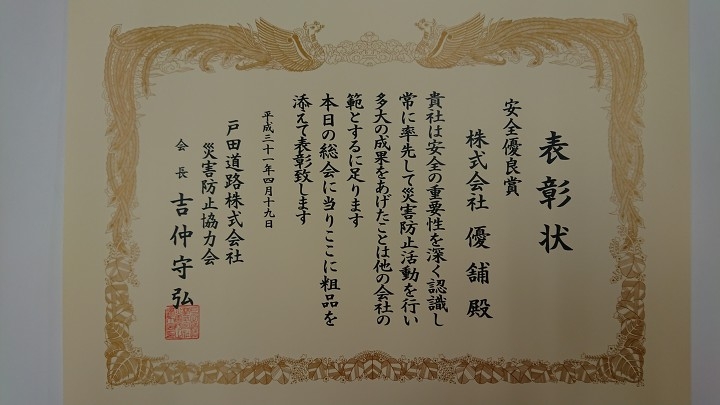 表彰状
安全優良賞
株式会社 優舗 殿
貴社は安全の重要性を深く認識し
常に率先して災害防止活動を行い
多大の成果をあげたことは他の会社の
範とするに足ります
本日の総会に当りここに粗品を
添えて表彰致します
平成三十一年四月十九日
戸田道路株式会社
災害防止協力会
会長 吉仲守弘